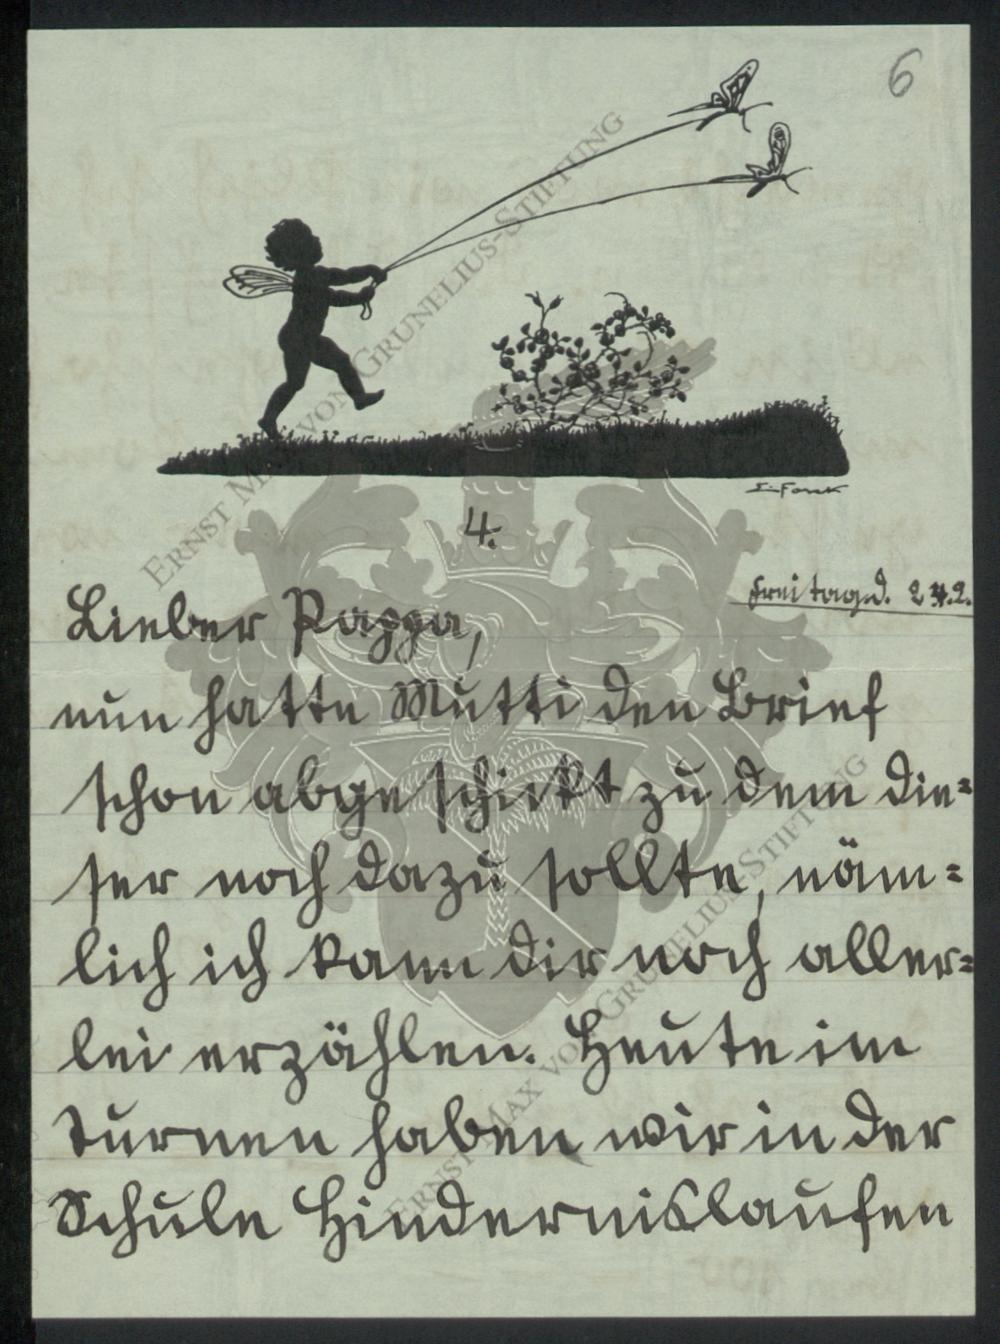 6
4.
Freitag d. 24.2.
Lieber Pappa,
nun hatte Mutti den Brief
schon abgeschickt zu dem die=
ser noch dazu sollte, näm=
lich ich kann dir noch aller=
lei erzählen. Heute im
Turnen haben wir in der
Schule Hindernislaufen
ERNST MAX VON GRUNELIUS-STIFTUNG
ERNST MAX VON GRUNELIUS-STIFTUNG